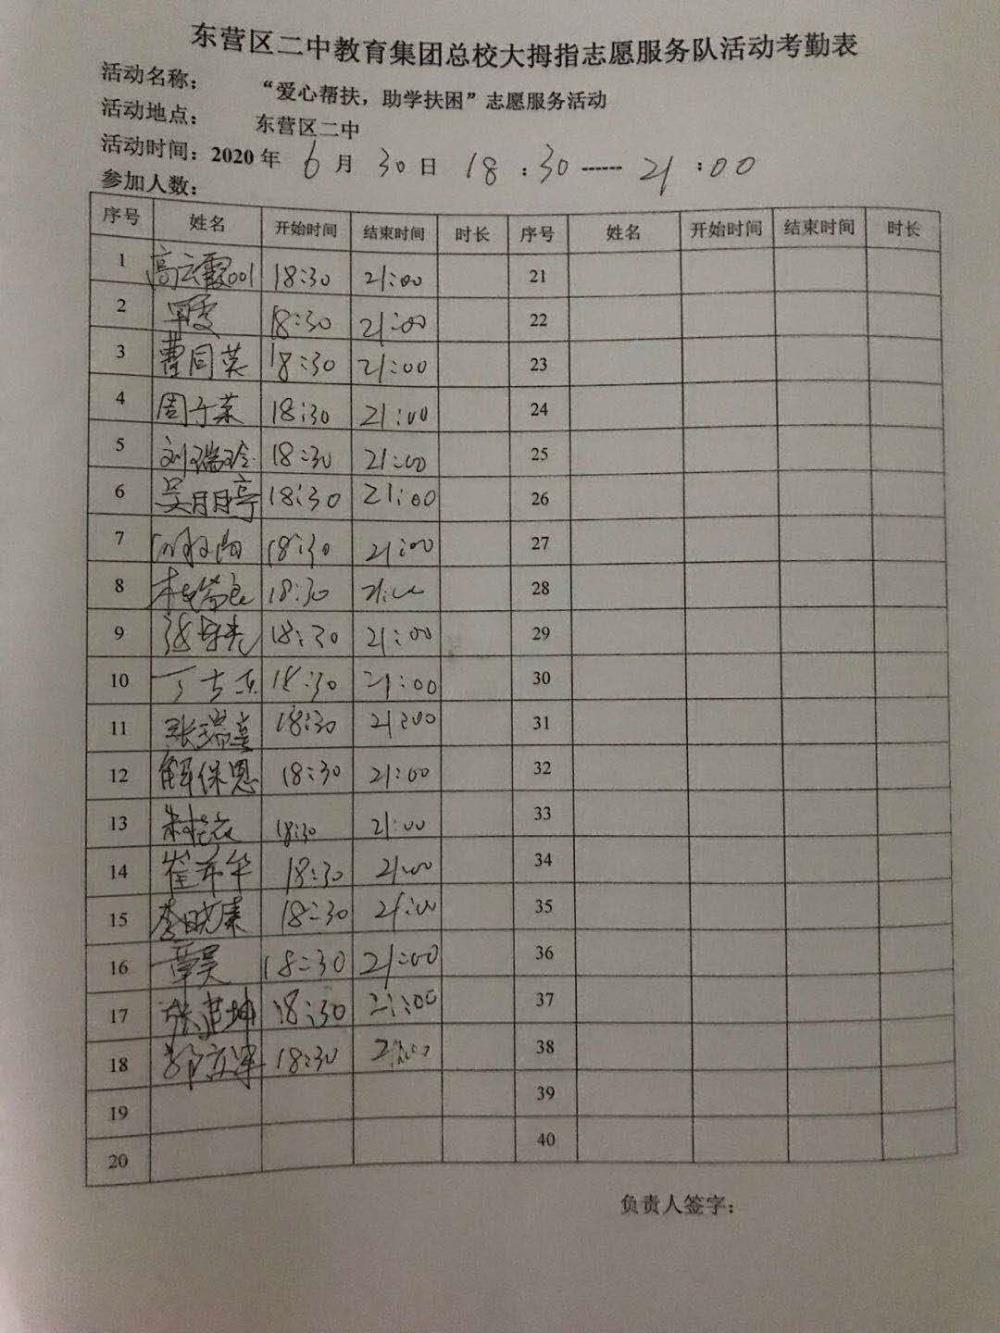 东营区二中教育集团总校大拇指志愿服务队活动考勤表
活动名称： “爱心帮扶，助学扶困”志愿服务活动
活动地点： 东营区二中
活动时间：2020 年 6 月 30 日 18 :30 ------ 21 :00
参加人数：
序号 姓名 开始时间 结束时间 时长 序号 姓名 开始时间 结束时间 时长
1 高云霞001 18:30 21:00 21
2 18:30 21:00 22
3 曹同英 18:30 21:00 23
4 周子荣 18:30 21:00 24
5 刘瑞玲 18:30 21:00 25
6 吴月亭 18:30 21:00 26
7 18:30 21:00 27
8 18:30 21:00 28
9 18:30 21:00 29
10 18:30 21:00 30
11 张瑞 18:30 21:00 31
12 保恩 18:30 21:00 32
13 18:30 21:00 33
14 崔希华 18:30 21:00 34
15 李晓康 18:30 21:00 35
16 章昊 18:30 21:00 36
17 张建坤 18:30 21:00 37
18 18:30 21:00 38
19 39
20 40
负责人签字：